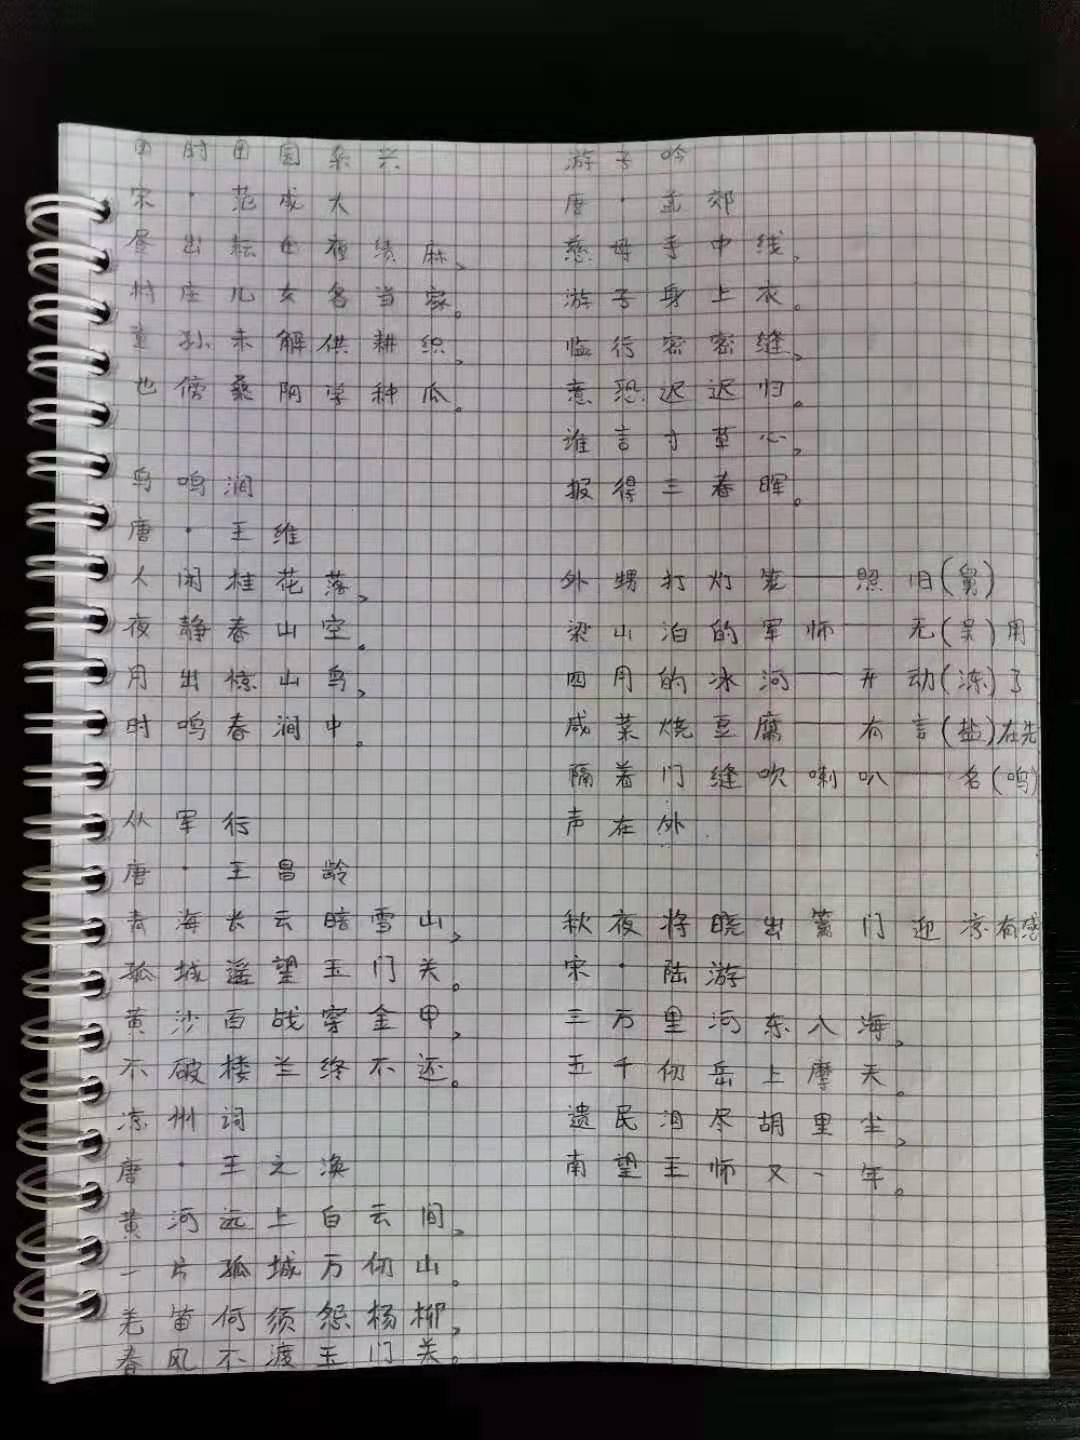 四时田园杂兴
宋·范成大
昼出耘田夜绩麻,
村庄儿女各当家。
童孙未解供耕织,
也傍桑阴学种瓜。
鸟鸣涧
唐·王维
人闲桂花落,
夜静春山空。
月出惊山鸟,
时鸣春涧中。
从军行
唐·王昌龄
青海长云暗雪山,
孤城遥望玉门关。
黄沙百战穿金甲,
不破楼兰终不还。
凉州词
唐·王之涣
黄河远上白云间,
一片孤城万仞山。
羌笛何须怨杨柳,
春风不渡玉门关。
游子吟
唐·孟郊
慈母手中线,
游子身上衣。
临行密密缝,
意恐迟迟归。
谁言寸草心,
报得三春晖。
外甥打灯笼——照旧(舅)
梁山泊的军师——无(吴)用
四月的冰河——开动(冻)了
咸菜烧豆腐——有言(盐)在先
隔着门缝吹喇叭——名(鸣)
声在外.
秋夜将晓出篱门迎凉有感
宋·陆游
三万里河东入海,
五千仞岳上摩天。
遗民泪尽胡里尘,
南望王师又一年。